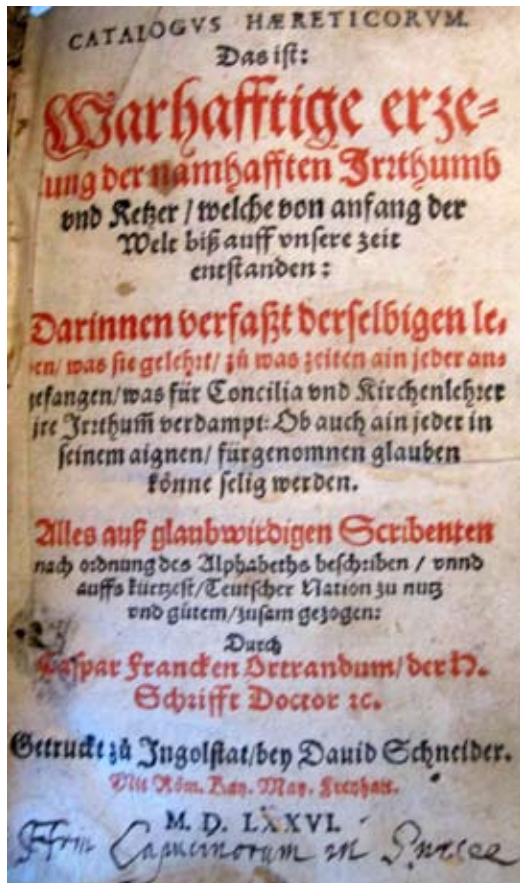 CATALOGVS HÆRETICORVM.
Das iſt:
Warhafftige erze⸗
lung der namhafften Jrrthumb
vnd Ketzer / welche von anfang der
Welt biß auff vnſere zeit
entſtanden:
Darinnen verfaßt derſelbigen le⸗
ben/ was ſie gelehrt/ zů was zeiten ain jeder an⸗
gefangen/ was für Concilia vnd Kirchenlehrer
jre Jrrthum̃ verdampt: Ob auch ain jeder in
ſeinem aignen/ fürgenomnen glauben
könne ſelig werden.
Alles auß glaubwirdigen Scribenten
nach ordnung des Alphabeths beſchriben / vnnd
auffs kürtzeſt/ Teutſcher Nation zu nutz
vnd gůtem/ zuſam gezogen:
Durch
Caſpar Francken Ortrandum/ der H.
Schrifft Doctor ꝛc.
Getruckt zů Jngolſtat/ bey Dauid Schneider.
Mit Röm. Kay. May. Freyhait.
M. D. LXXVI.
Capucinorum in